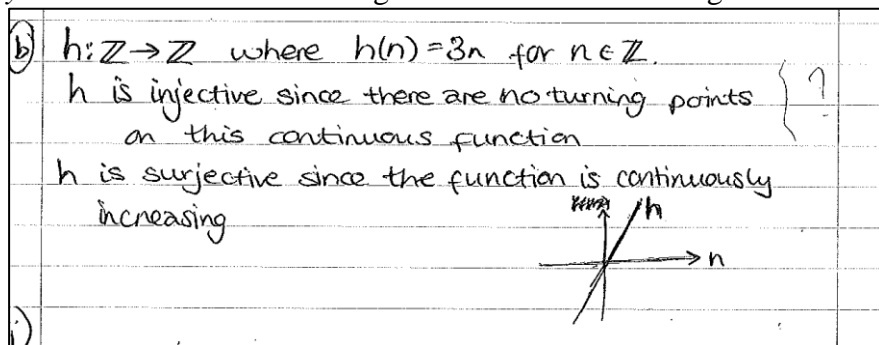 b) h: ℤ→ℤ where h(n) = 3n for n ∈ ℤ.
h is injective since there are no turning points
on this continuous function
?
h is surjective since the function is continuously
increasing
h
n
i)